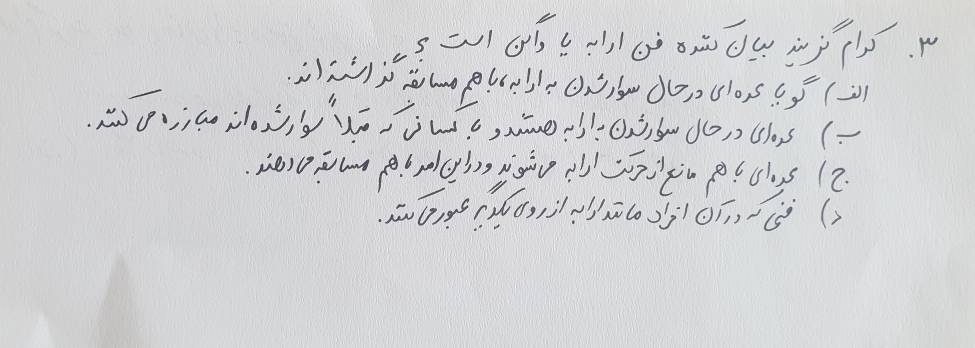 ۳. کدام گزینه بیان کننده فن ارابه یا واگن است؟
الف) گویا عده‌ای در حال سوار شدن به ارابه، با هم مسابقه گذاشته‌اند.
ب) عده‌ای در حال سوار شدن به ارابه هستند و با کسانی که قبلاً سوار شده‌اند مبارزه می‌کنند.
ج) عده‌ای با هم مانع از حرکت ارابه می‌شوند و در این امر با هم مسابقه می‌دهند.
د) فنی که در آن افراد مانند ارابه از روی یکدیگر عبور می‌کنند.